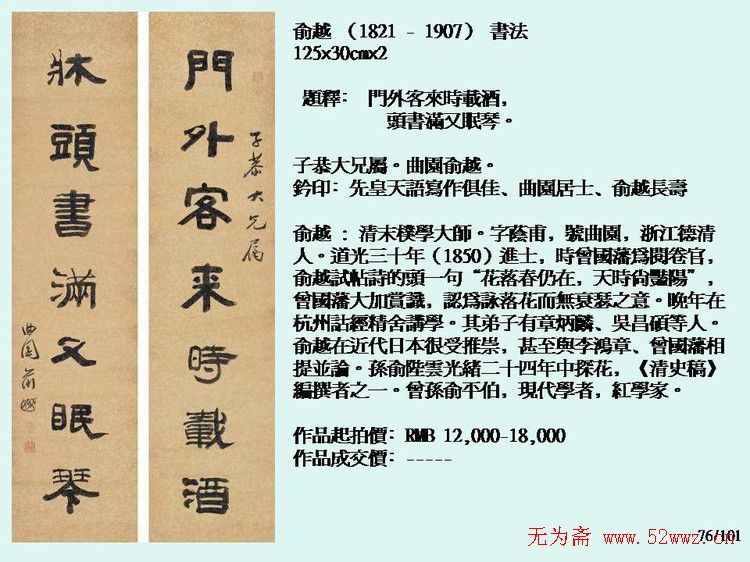 門外客来時載酒
子恭大兄屬
牀頭書滿又眠琴
曲園俞樾
俞越 （1821 - 1907） 書法
125x30cmx2
題釋： 門外客來時載酒，
頭書滿又眠琴。
子恭大兄屬。曲園俞越。
鈐印：先皇天語寫作俱佳、曲園居士、俞越長壽
俞越 : 清末樸學大師。字蔭甫，號曲園，浙江德清
人。道光三十年（1850）進士，時曾國藩爲閱卷官，
俞越試帖詩的頭一句“花落春仍在，天時尚豔陽”，
曾國藩大加賞識，認爲詠落花而無衰瑟之意。晚年在
杭州詁經精舍講學。其弟子有章炳麟、吳昌碩等人。
俞越在近代日本很受推崇，甚至與李鴻章、曾國藩相
提並論。孫俞陛雲光緒二十四年中探花，《清史稿》
編撰者之一。曾孫俞平伯，現代學者，紅學家。
作品起拍價：RMB 12,000-18,000
作品成交價：-----
76/101
无为斋 www.52wwz.cn